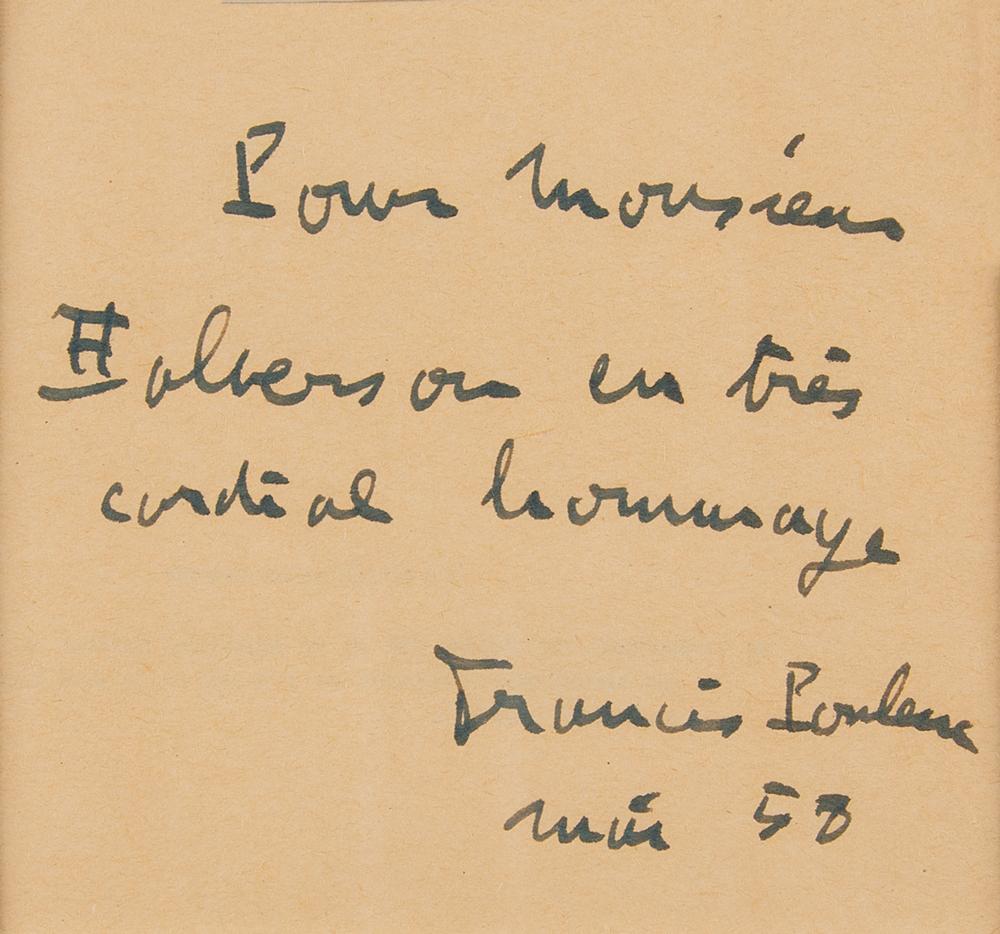 Pour Monsieur
Halverson en très
cordial hommage
Francis Poulenc
mai 58